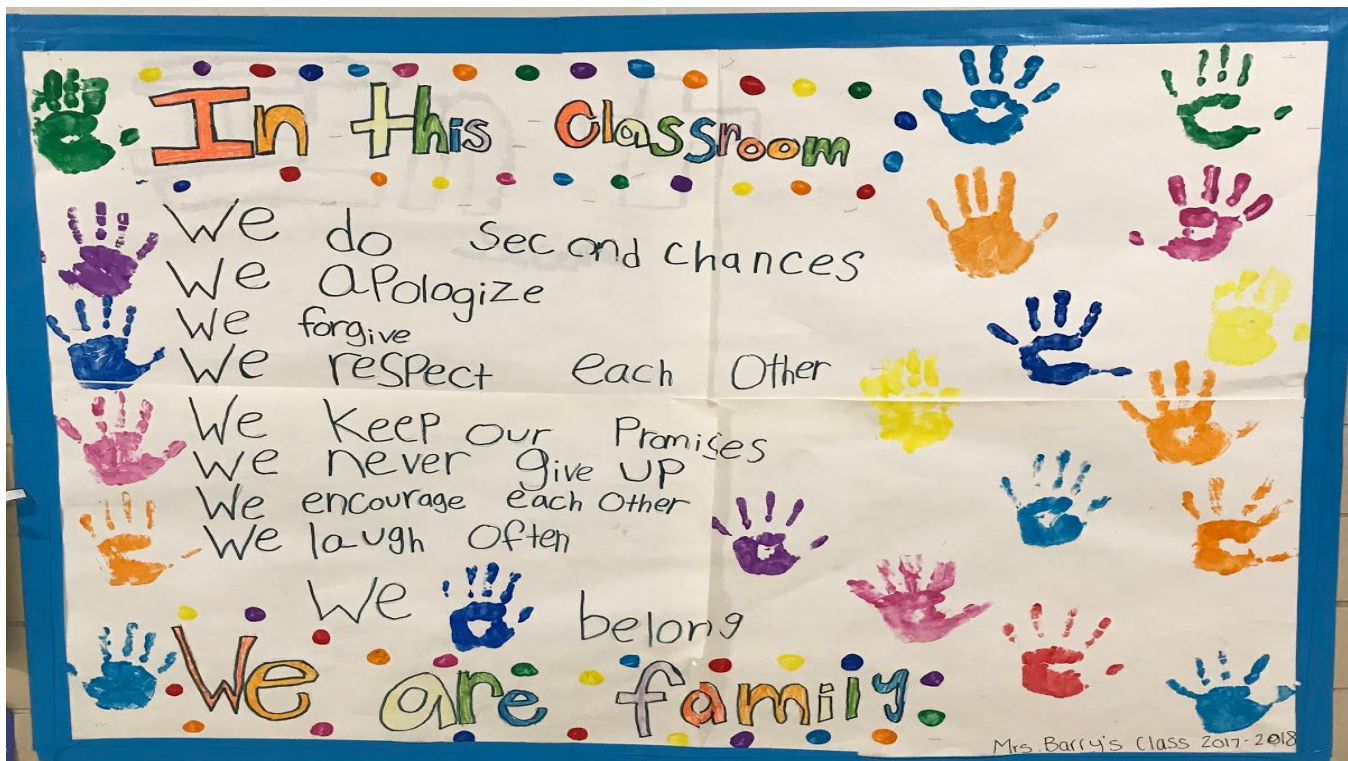 In this Classroom
We do Second chances
We apologize
We forgive
We respect each Other
We Keep our Promises
We never give up
We encourage each Other
We laugh Often
We belong
We are family.
Mrs. Barry's Class 2017-2018